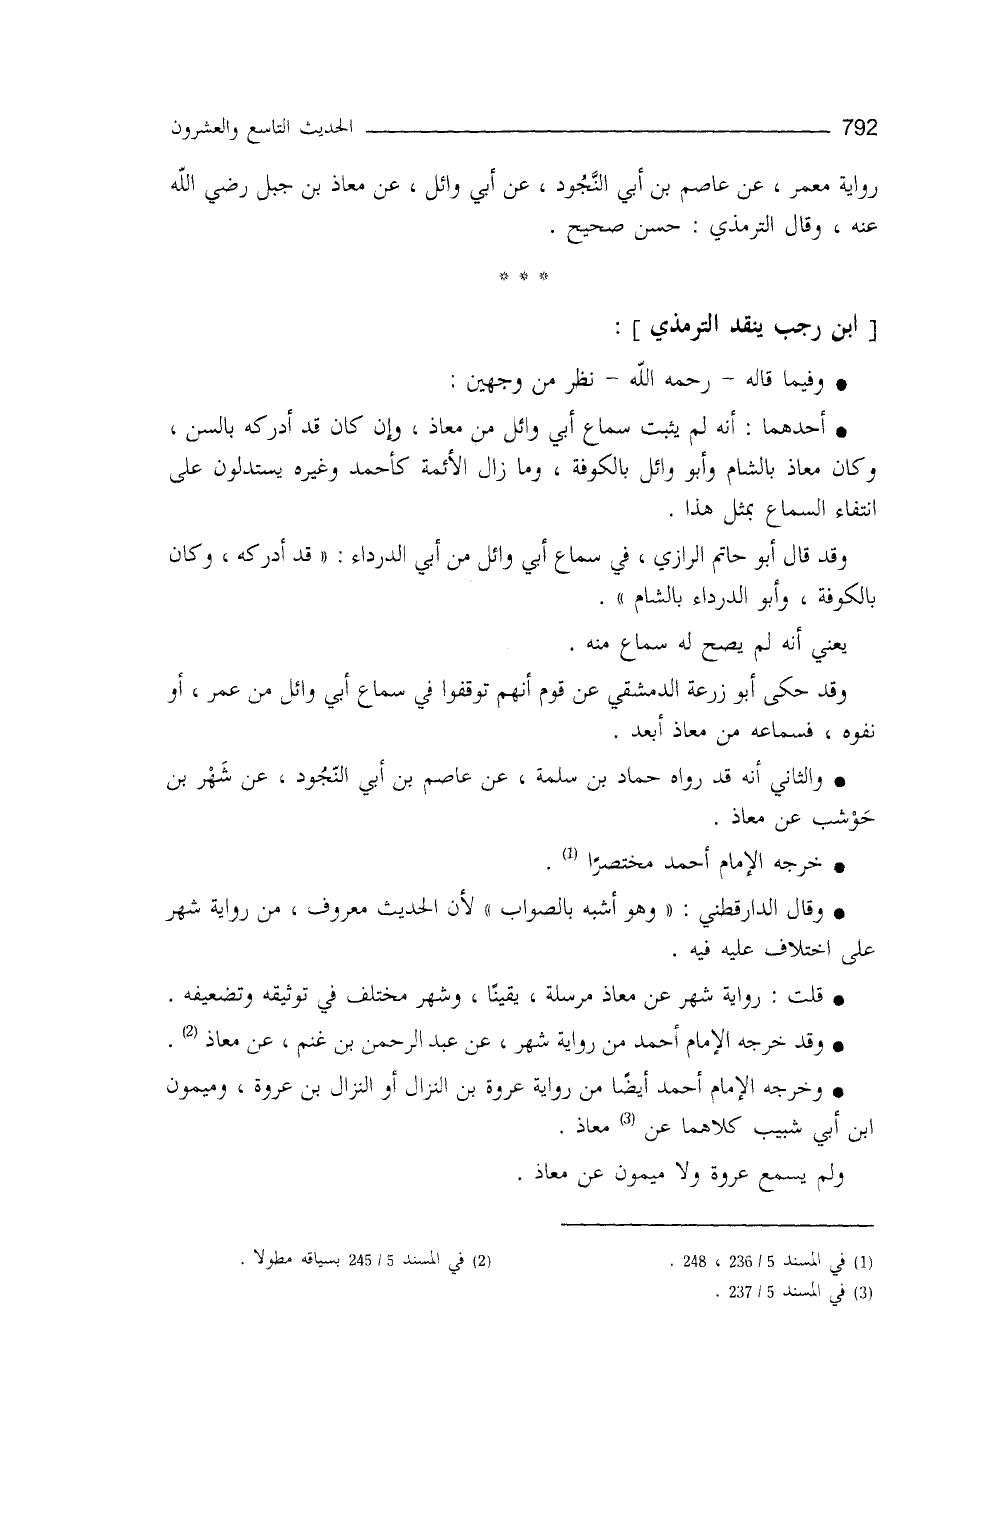 792 الحديث التاسع والعشرون
رواية معمر ، عن عاصم بن أبي النَّجُود ، عن أبي وائل ، عن معاذ بن جبل رضي اللَّه
عنه ، وقال الترمذي : حسن صحيح .
* * *
[ ابن رجب ينقد الترمذي ] :
● وفيما قاله – رحمه اللَّه – نظر من وجهين :
● أحدهما : أنه لم يثبت سماع أبي وائل من معاذ ، وإن كان قد أدركه بالسن ،
وكان معاذ بالشام وأبو وائل بالكوفة ، وما زال الأئمة كأحمد وغيره يستدلون على
انتفاء السماع بمثل هذا .
وقد قال أبو حاتم الرازي ، في سماع أبي وائل من أبي الدرداء : « قد أدركه ، وكان
بالكوفة ، وأبو الدرداء بالشام » .
يعني أنه لم يصح له سماع منه .
وقد حكى أبو زرعة الدمشقي عن قوم أنهم توقفوا في سماع أبي وائل من عمر ، أو
نفوه ، فسماعه من معاذ أبعد .
● والثاني أنه قد رواه حماد بن سلمة ، عن عاصم بن أبي النّجُود ، عن شَهْر بن
حَوْشب عن معاذ .
● خرجه الإمام أحمد مختصرًا (1) .
● وقال الدارقطني : « وهو أشبه بالصواب » لأن الحديث معروف ، من رواية شهر
على اختلاف عليه فيه .
● قلت : رواية شهر عن معاذ مرسلة ، يقينًا ، وشهر مختلف في توثيقه وتضعيفه .
● وقد خرجه الإمام أحمد من رواية شهر ، عن عبد الرحمن بن غنم ، عن معاذ (2) .
● وخرجه الإمام أحمد أيضًا من رواية عروة بن النزال أو النزال بن عروة ، وميمون
ابن أبي شبيب كلاهما عن (3) معاذ .
ولم يسمع عروة ولا ميمون عن معاذ .
(1) في المسند 5 / 236 ، 248 . (2) في المسند 5 / 245 بسياقه مطولا .
(3) في المسند 5 / 237 .